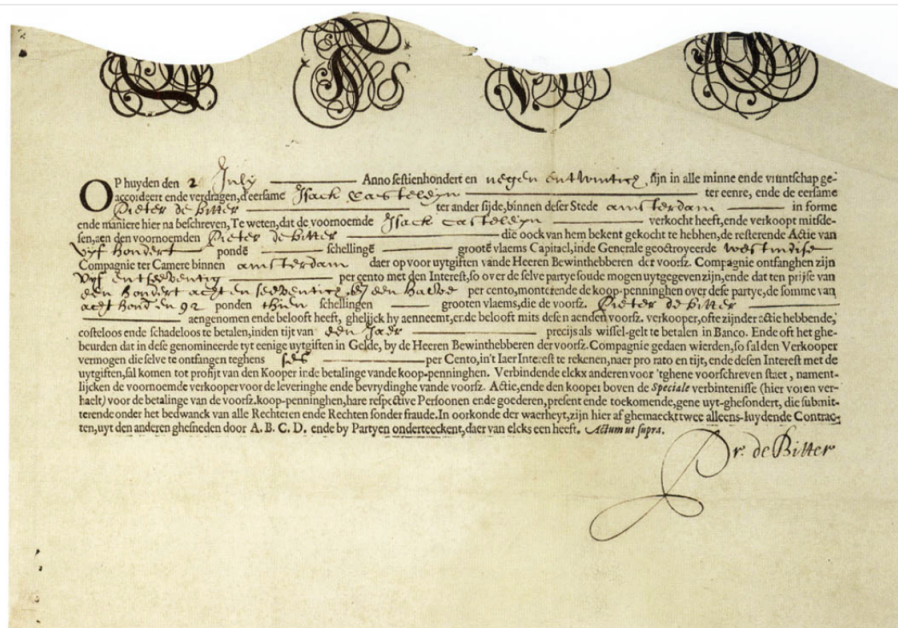 OP huyden den 2 July Anno sestienhondert en negen entwintich, sijn in alle minne ende vruntschap ge-
accordeert ende verdragen, d'eersame Isack Casteleijn ter eenre, ende de eersame
Pieter de Bitter ter ander sijde, binnen deser Stede amsterdam in forme
ende maniere hier na beschreven, Te weten, dat de voornoemde Isack Casteleijn verkocht heeft, ende verkoopt mitsde-
sen, aen den voornoemden Pieter de Bitter die oock van hem bekent gekocht te hebben, de resterende Actie van
vijf hondert pondē schellingē grootē vlaems Capitael, inde Generale geoctroyeerde westindise
Compagnie ter Camere binnen amsterdam daer op voor uytgiften vande Heeren Bewinthebberen der voorsz. Compagnie ontfanghen zijn
vijf entseeventig per cento met den Interest, so over de selve partye soude mogen uytgegeven zijn, ende dat ten prijse van
een hondert acht en seeventich en een halve per cento, monterende de koop-penninghen over dese partye, de somme van
acht hond en 92 ponden thien schellingen grooten vlaems, die de voorsz. Pieter de Bitter
aengenomen ende belooft heeft, ghelijck hy aenneemt, ende belooft mits desen aenden voorsz. verkooper, ofte zijnder actie hebbende,
costeloos ende schadeloos te betalen, inden tijt van een Jaer precijs als wissel-gelt te betalen in Banco. Ende oft het ghe-
beurden dat in dese genomineerde tyt eenige uytgiften in Gelde, by de Heeren Bewinthebberen der voorsz. Compagnie gedaen wierden, so sal den Verkooper
vermogen die selve te ontfangen teghens ses per Cento, in't Iaer Interest te rekenen, naer pro rato en tijt, ende desen Interest met de
uytgiften, sal komen tot profijt van den Kooper inde betalinge vande koop-penninghen. Verbindende elckx anderen voor 'tghene voorschreven staet, nament-
lijcken de voornoemde verkooper voor de leveringhe ende bevrydinghe vande voorsz. Actie, ende den kooper boven de Speciale verbintenisse (hier voren ver-
haelt) voor de betalinge van de voorsz. koop-penninghen, hare respective Persoonen ende goederen, present ende toekomende, gene uyt-ghesondert, die submit-
terende onder het bedwanck van alle Rechteren ende Rechten sonder fraude. In oorkonde der waerheyt, zijn hier af ghemaeckt twee alleens-luydende Contrac-
ten, uyt den anderen ghesneden door A. B. C. D. ende by Partyen onderteeckent, daer van elcks een heeft. Actum ut supra.
Pr. de Bitter